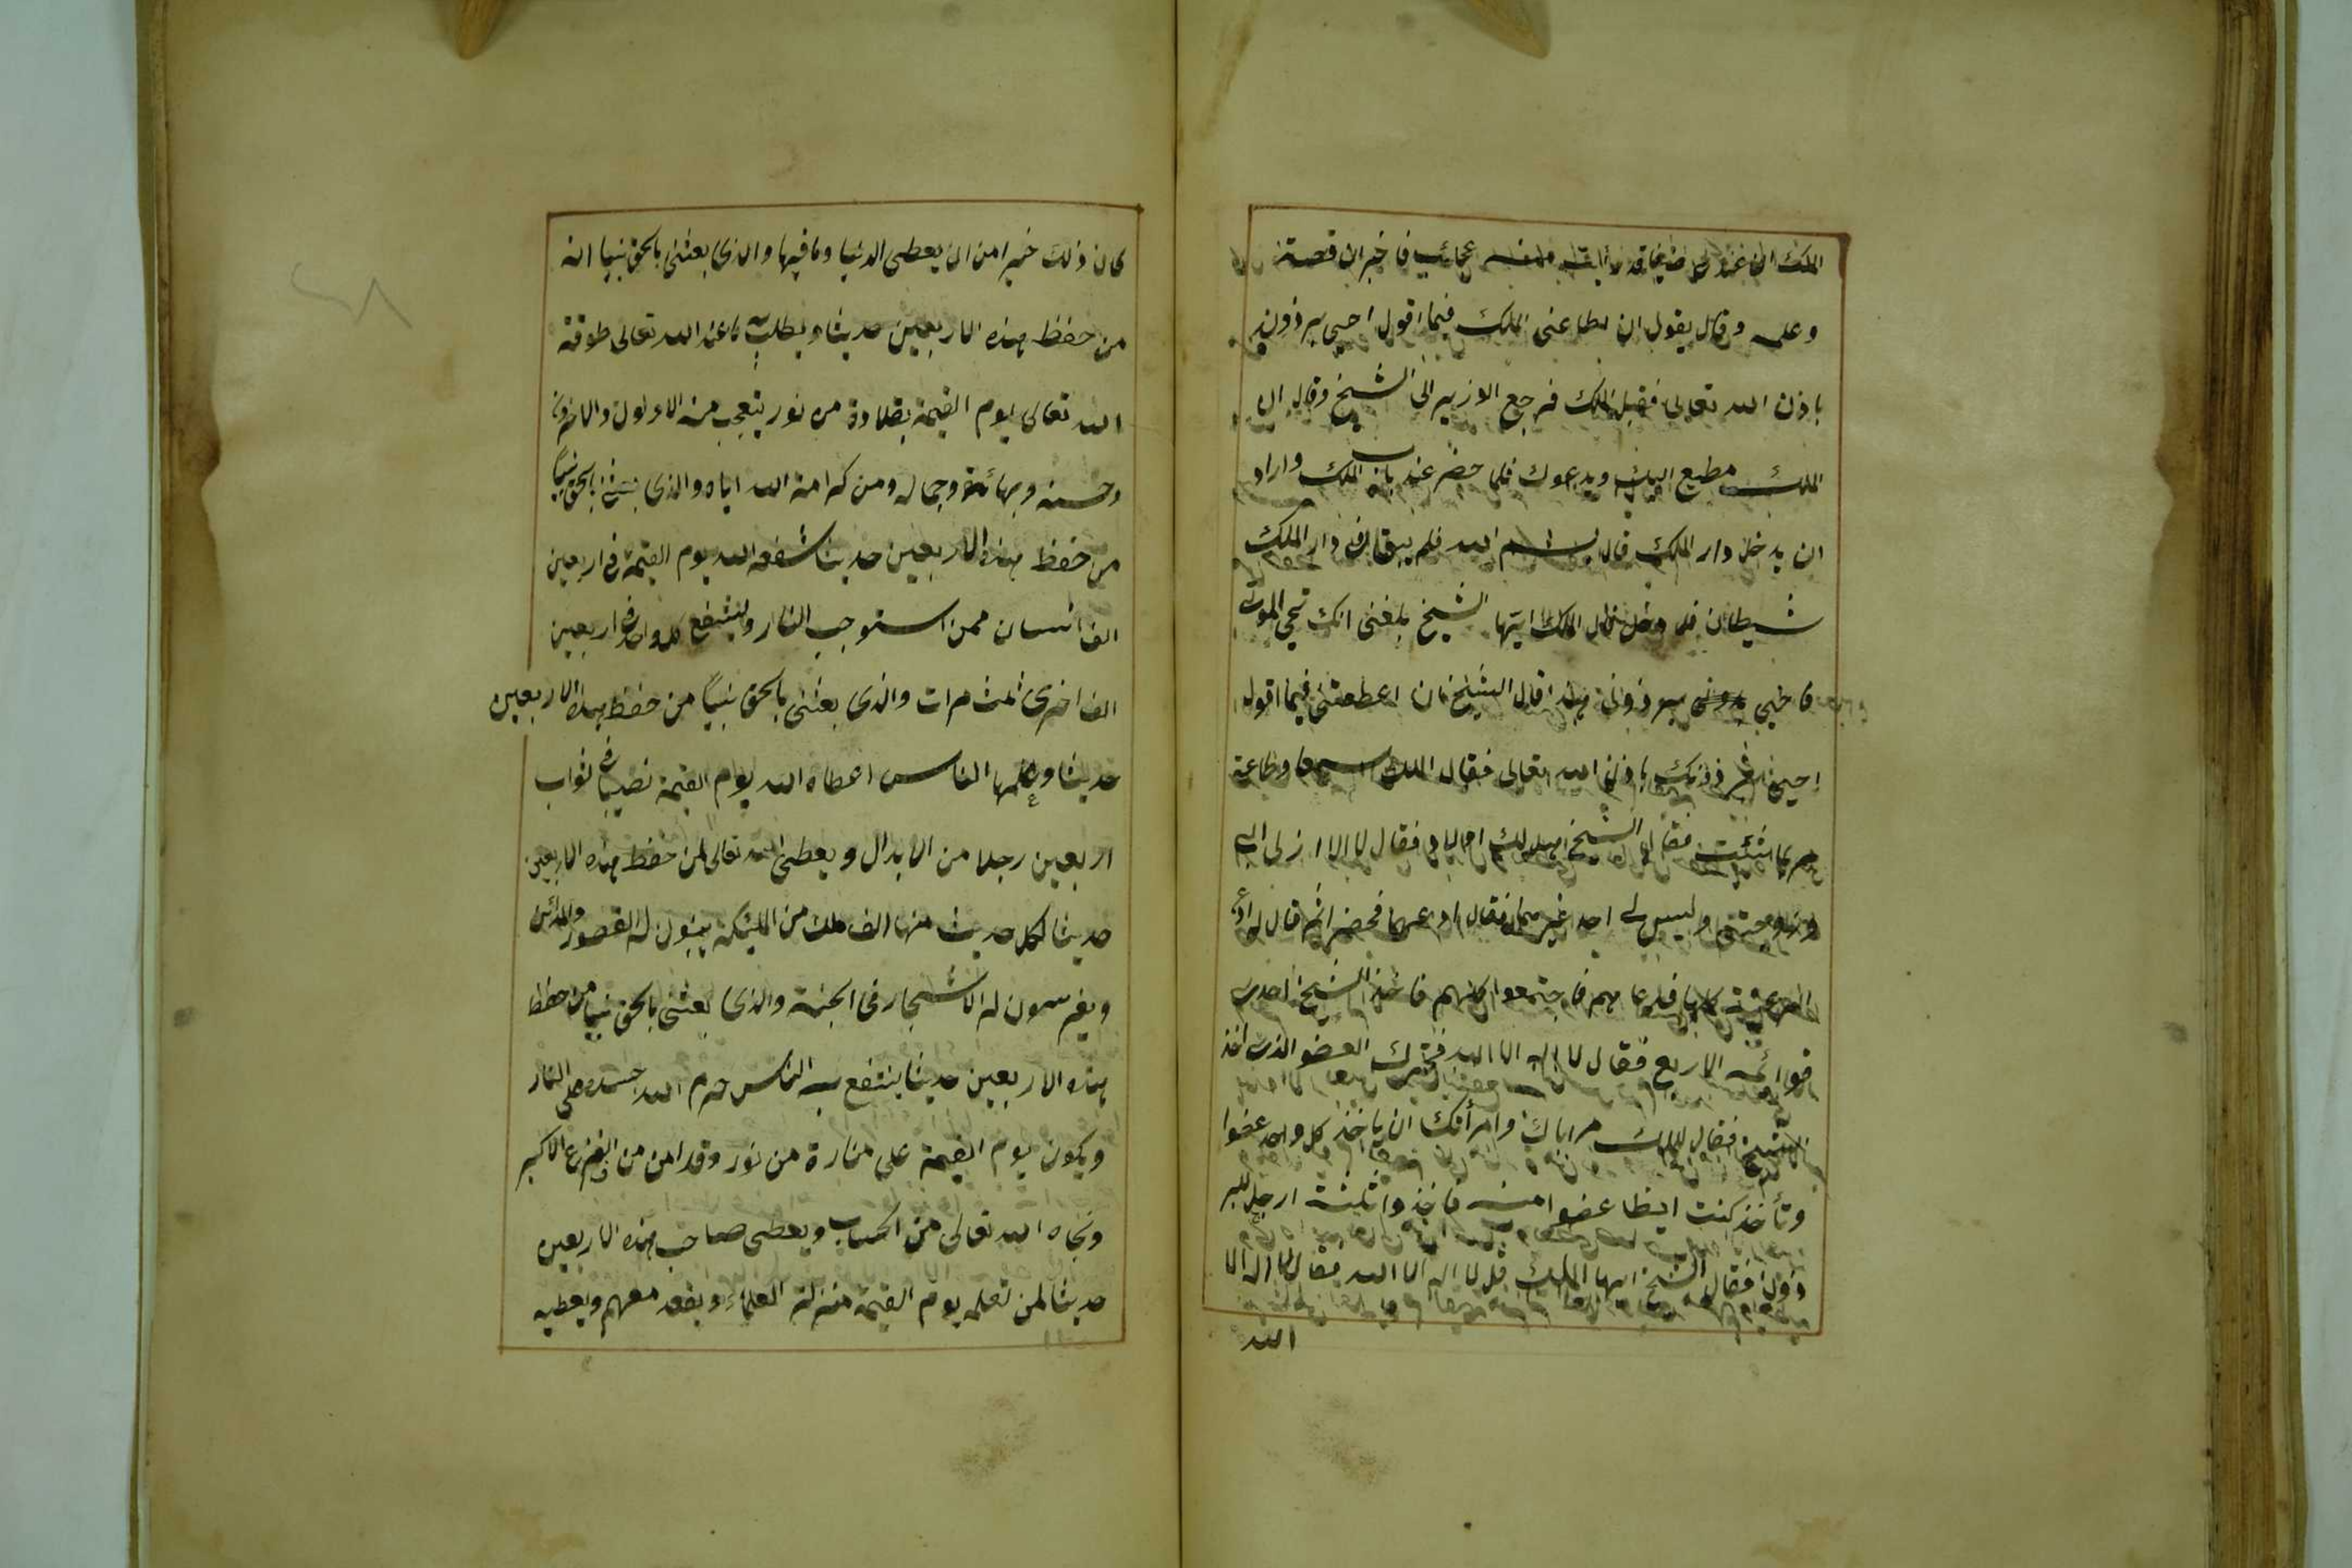 الملك ان عندى ضيفا قد عجائب فاخبر ان قصته
وعلمه وقال يقول ان يطاعنى الملك فيما اقول احيى برذونه
باذن الله تعالى فقبل الملك فرجع الوزير الى الشيخ وقال ان
الملك مطيع اليك ويدعوك فلما حضر عند باب الملك واراد
ان يدخل دار الملك قال بسم الله فلم يبق فى دار الملك
شيطان فلما دخل قال الملك ايتها الشيخ بلغنى انك تحى الموتى
فاحيى برذونى هذا قال الشيخ ان اعطعتنى فيما اقول
احيى برذونك باذن الله تعالى فقال الملك سمعا وطاعة
مر بما شئت فقال الشيخ هل لك اولاد فقال لا الا ان لى اب
وزوجتى وليس لى احد غيرهما فقال ادعهما فحضرا ثم قال له ادع
الرعية كلها فدعاهم فاجتمعوا كلهم فاخذ الشيخ احدى
قوائمه الاربع فقال لا اله الا الله فتحرك العضو الذى اخذ
الشيخ فقال للملك مر اباك وامرأتك ان ياخذ كل واحد عضوا
وتأخذ كنت ايضا عضوا منه فاخذوا ثلثة ارجل للبر
ذون فقال الشيخ ايها الملك قل لا اله الا الله فقال لا اله الا
الله
كان ذلك خيرا من ان يعطى الدنيا وما فيها والذى بعثنى بالحق نبيا انه
من حفظ هذه الاربعين حديثا ويطلب به ما عند الله تعالى طوقه
الله تعالى يوم القيمة بقلادة من نور يتعجب منه الاولون والاخرون
وحسنه وبهائه وجماله ومن كرامة الله اياه والذى بعثنى بالحق نبيا
من حفظ هذه الاربعين حديثا شفعه الله يوم القيمة فى اربعين
الف انسان ممن استوجب النار وليشفع كل واحد فى اربعين
الف اخرى ثلث مرات والذى بعثنى بالحق نبيا من حفظ هذه الاربعين
حديثا وعلمها الناس اعطاه الله يوم القيمة نصيبا فى ثواب
اربعين رجلا من الابدال ويعطى الله تعالى لمن حفظ هذه الاربعين
حديثا لكل حديث منها الف ملك من المليكة يبنون له القصور والمدائن
ويغرسون له الاشجار فى الجنة والذى بعثنى بالحق نبيا من حفظ
هذه الاربعين حديثا ينتفع به الناس حرم الله جسده على النار
ويكون يوم القيمة على منارة من نور وقد امن من الفزع الاكبر
ونجاه الله تعالى من الحساب ويعطى صاحب هذه الاربعين
حديثا لمن تعلمه يوم القيمة منزلة العلماء ويقعد معهم ويعطيه